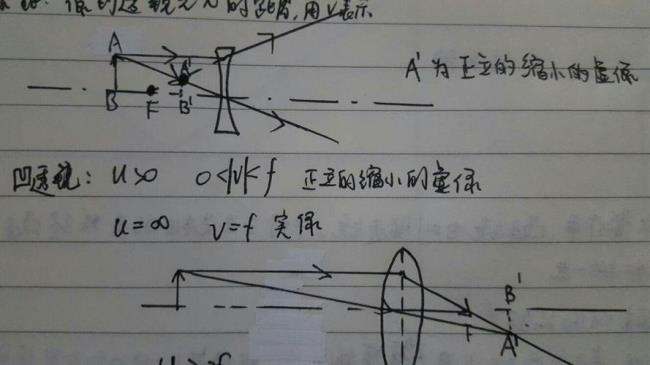 像的透视光儿的距离,用V表示
A
A'
B F B'
A'为正立的缩小的虚像
凹透镜: u>0 0<|v|<f 正立的缩小的虚像
u=∞ v=f 实像
B'
F
A'